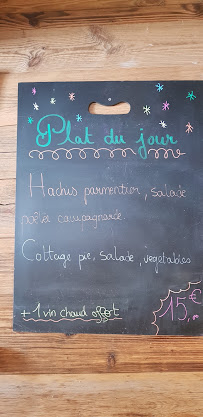 Plat du jour
Hachis parmentier, salade
poêlée campagnarde
Cottage pie, salade, vegetables
+ 1 vin chaud offert
15,00